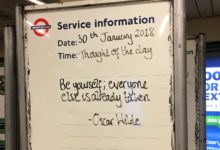 Service information
Date: 30th January 2018
Time: Thought of the day
Be yourself; everyone
else is already taken
- Oscar Wilde